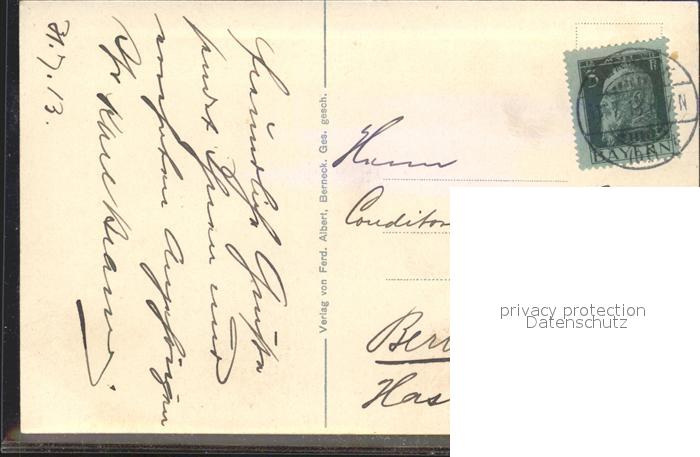 Freundliche Grüße
sendet Ihnen und
werten Angehörigen
Ihr Karl
31.7.13.
Verlag von Ferd. Albert, Berneck. Ges. gesch.
5
BAYERN
Herrn
Conditor
Ber
Has
privacy protection
Datenschutz